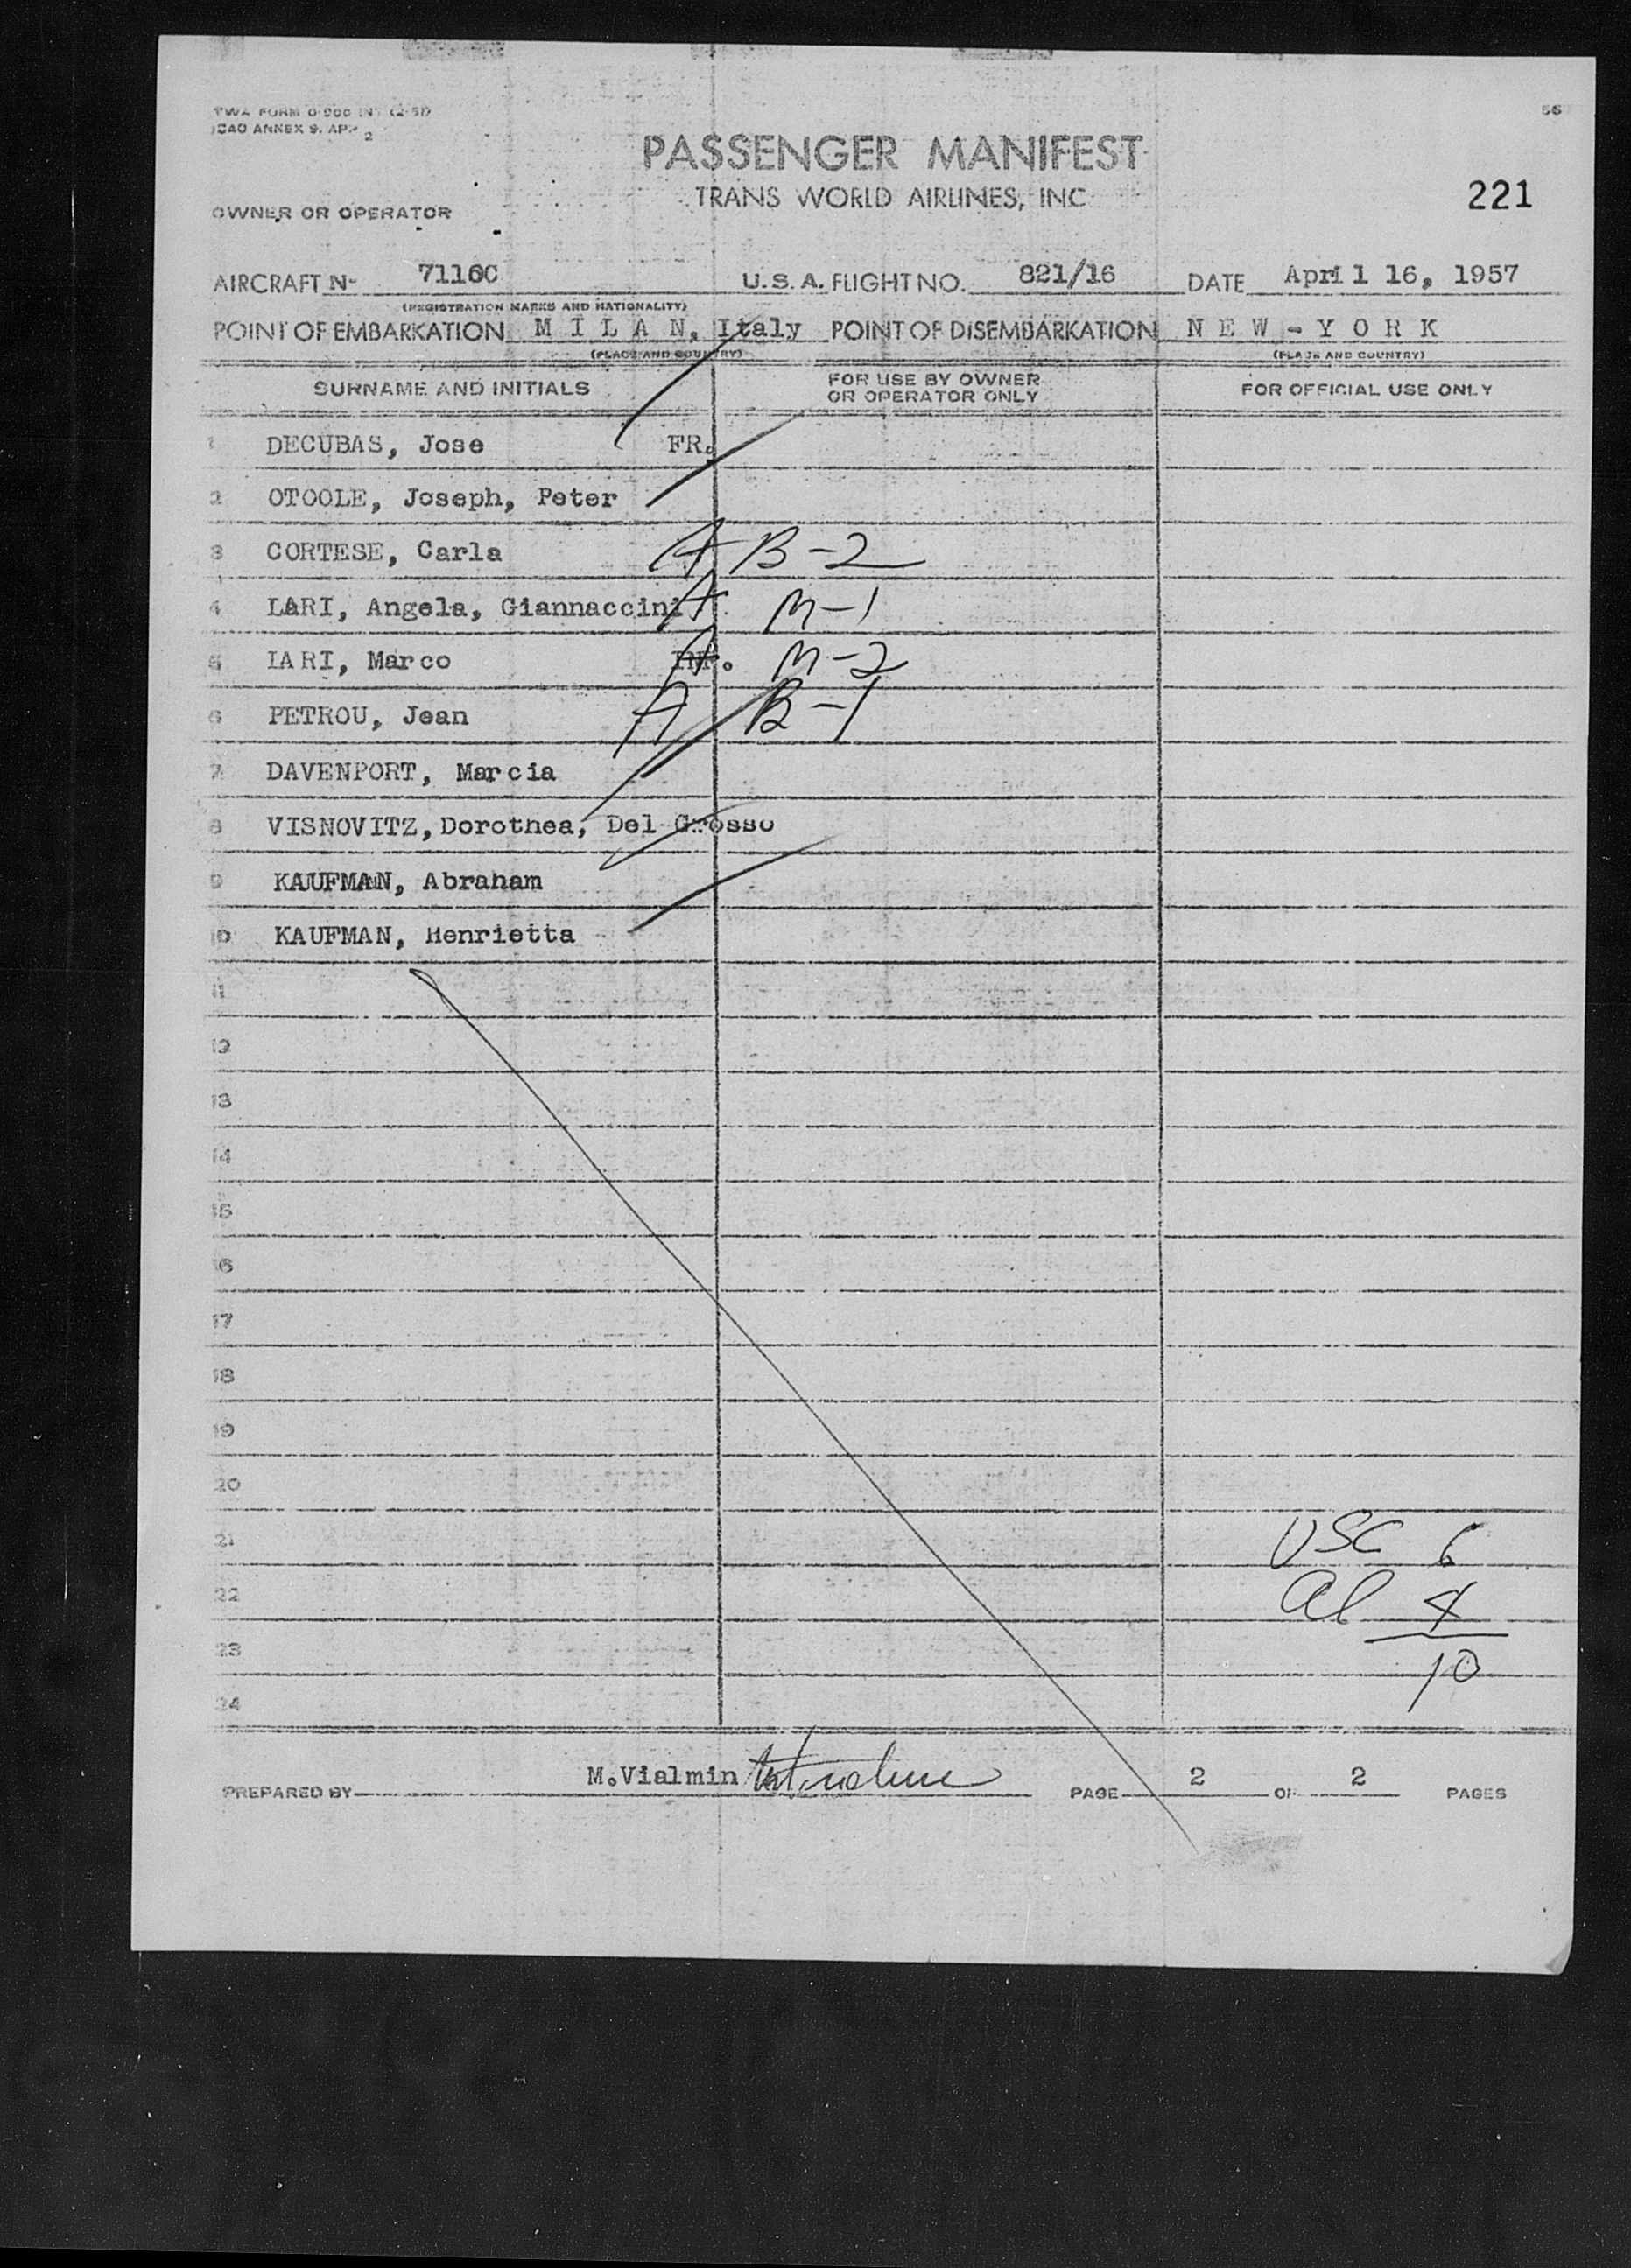 TWA FORM 0-900 INT (2-51)
ICAO ANNEX 9, APP 2
56
PASSENGER MANIFEST
TRANS WORLD AIRLINES, INC
221
OWNER OR OPERATOR
AIRCRAFT N- 7116C U.S.A. FLIGHT NO. 821/16 DATE April 16, 1957
(REGISTRATION MARKS AND NATIONALITY)
POINT OF EMBARKATION MILAN, Italy POINT OF DISEMBARKATION NEW-YORK
(PLACE AND COUNTRY) (PLACE AND COUNTRY)
SURNAME AND INITIALS FOR USE BY OWNER OR OPERATOR ONLY FOR OFFICIAL USE ONLY
1 DECUBAS, Jose FR.
2 OTOOLE, Joseph, Peter
3 CORTESE, Carla A B-2
4 LARI, Angela, Giannaccini A M-1
5 LARI, Marco INF. A M-2
6 PETROU, Jean A B-1
7 DAVENPORT, Marcia
8 VISNOVITZ, Dorothea, Del Grosso
9 KAUFMAN, Abraham
10 KAUFMAN, Henrietta
11
12
13
14
15
16
17
18
19
20
21 USC 6
22 al 4
23 10
24
PREPARED BY M.Vialmin PAGE 2 OF 2 PAGES